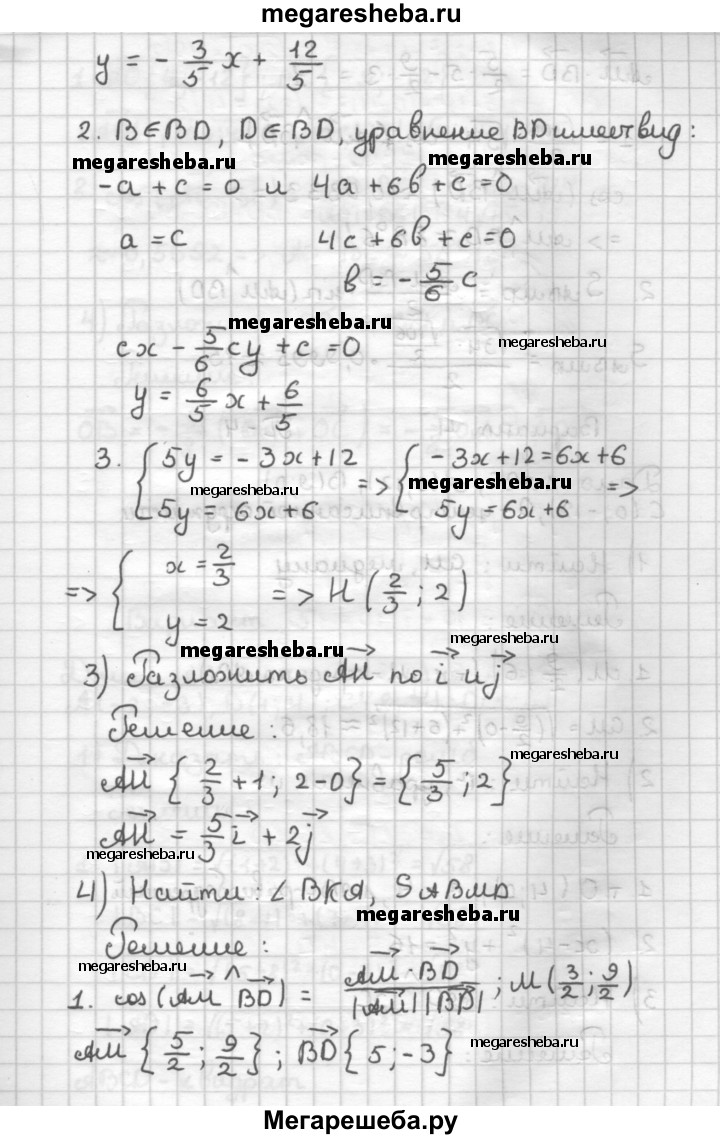 megaresheba.ru
y = - 3/5 x + 12/5
2. B∈BD, D∈BD, уравнение BD имеет вид:
megaresheba.ru megaresheba.ru
-a + c = 0 и 4a + 6b + c = 0
a = c 4c + 6b + c = 0
b = - 5/6 c
megaresheba.ru
cx - 5/6 cy + c = 0 megaresheba.ru
y = 6/5 x + 6/5
3. { 5y = - 3x + 12 => { - 3x + 12 = 6x + 6
megaresheba.ru megaresheba.ru
5y = 6x + 6 5y = 6x + 6 =>
=> { x = 2/3 y = 2 => H (2/3 ; 2)
megaresheba.ru megaresheba.ru
3) Разложить AH→ по i→ и j→
Решение:
megaresheba.ru
AH→ { 2/3 + 1; 2-0} = { 5/3 ; 2}
AH→ = 5/3 i→ + 2j→
megaresheba.ru
4) Найти: ∠ BKA, S ABMD
megaresheba.ru
Решение:
megaresheba.ru
1. cos (AM→ ^ BD→) = AM→ · BD→ / |AM→| |BD→| ; M (3/2 ; 9/2)
megaresheba.ru
AM→ { 5/2 ; 9/2 } ; BD→ { 5 ; -3 }
Мегарешеба.ру